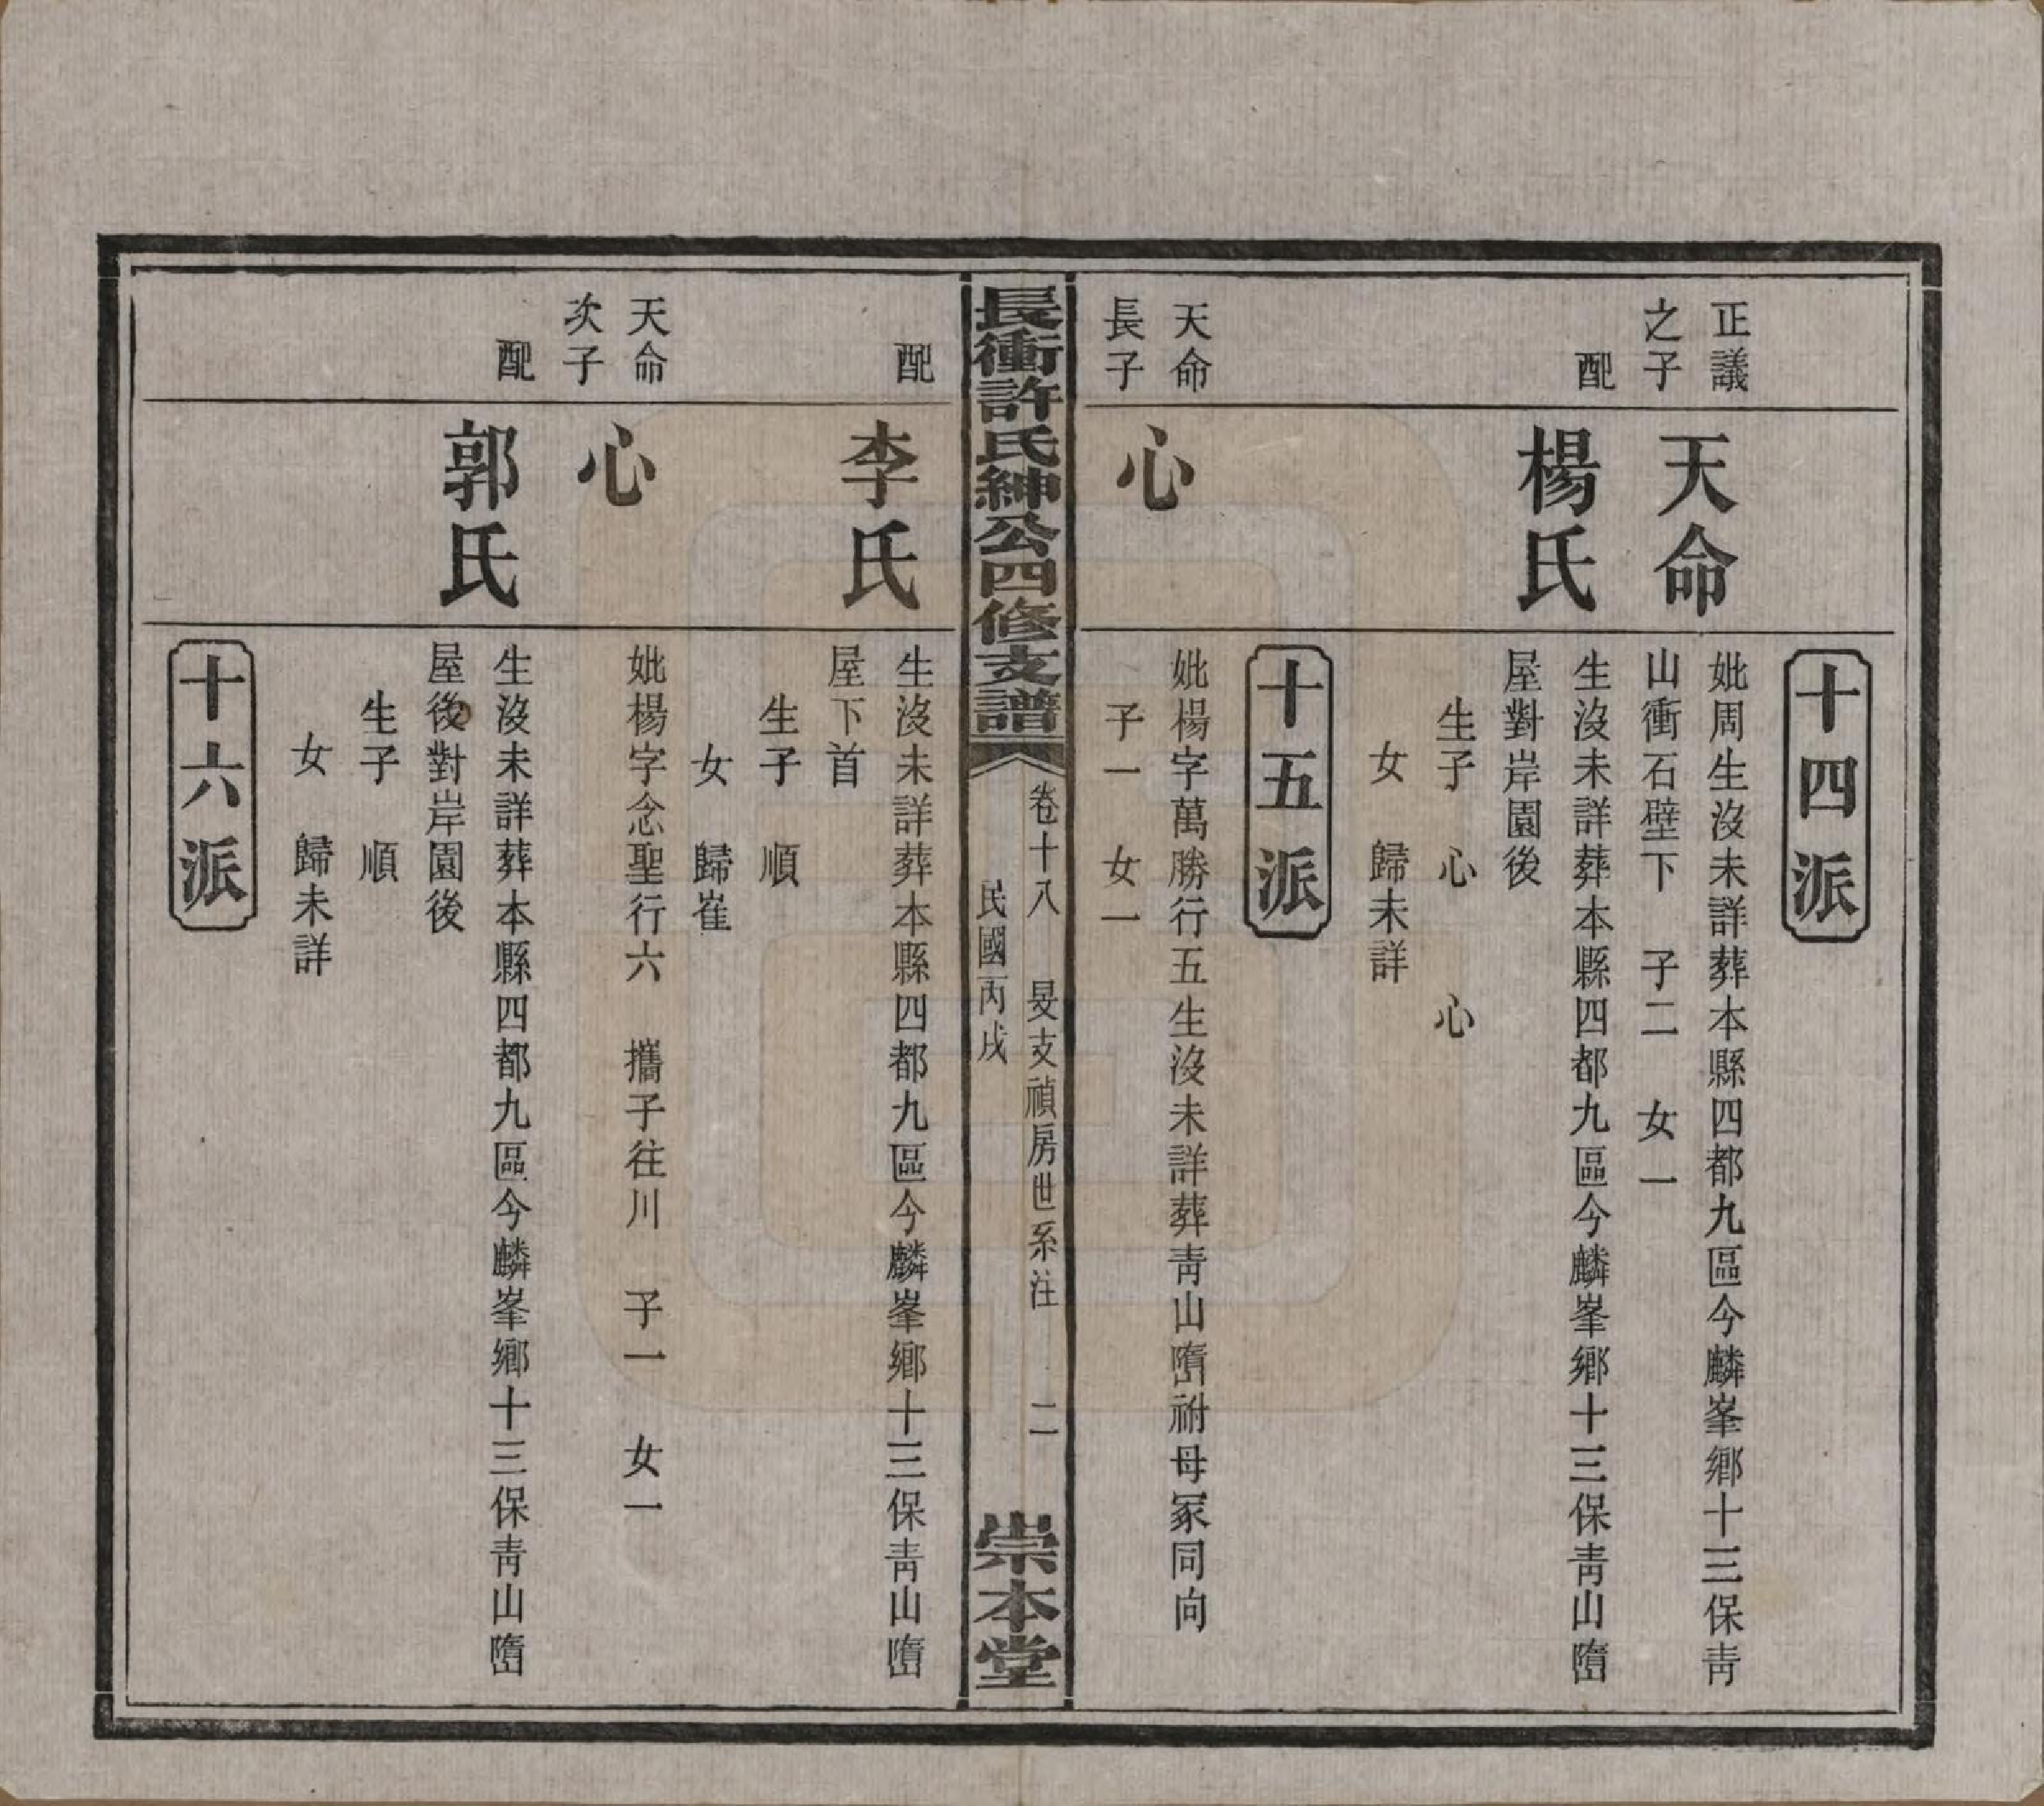 十四派
正議
之子
天命
妣周生沒未詳葬本縣四都九區今麟峯鄉十三保靑
山衝石壁下　子二　女一
配
楊氏
生沒未詳葬本縣四都九區今麟峯鄉十三保靑山嶞
屋對岸園後
生子　心　　心
女　歸未詳
十五派
天命
長子
心
妣楊字萬勝行五生沒未詳葬靑山嶞祔母冢同向
子一　女一
長衝許氏紳公四修支譜
卷十八　旻支禎房世系注　二
民國丙戌
崇本堂
配
李氏
生沒未詳葬本縣四都九區今麟峯鄉十三保靑山嶞
屋下首
生子　順
女　歸崔
天命
次子
心
妣楊字念聖行六　攜子往川　子一　女一
配
郭氏
生沒未詳葬本縣四都九區今麟峯鄉十三保靑山嶞
屋後對岸園後
生子　順
女　歸未詳
十六派